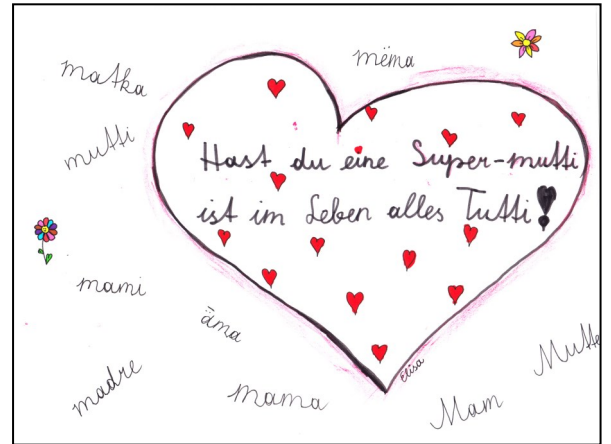 matka
mëma
mutti
Hast du eine Super-mutti
ist im Leben alles Tutti!
mami
äma
madre
mama
Elisa
Mam
Mutte